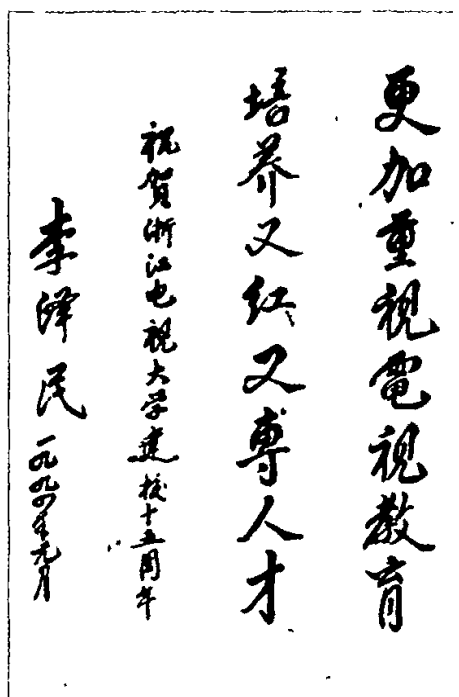 更加重視電視教育
培养又红又專人才
祝贺浙江电视大学建校十五周年
李泽民
一九九四年元月